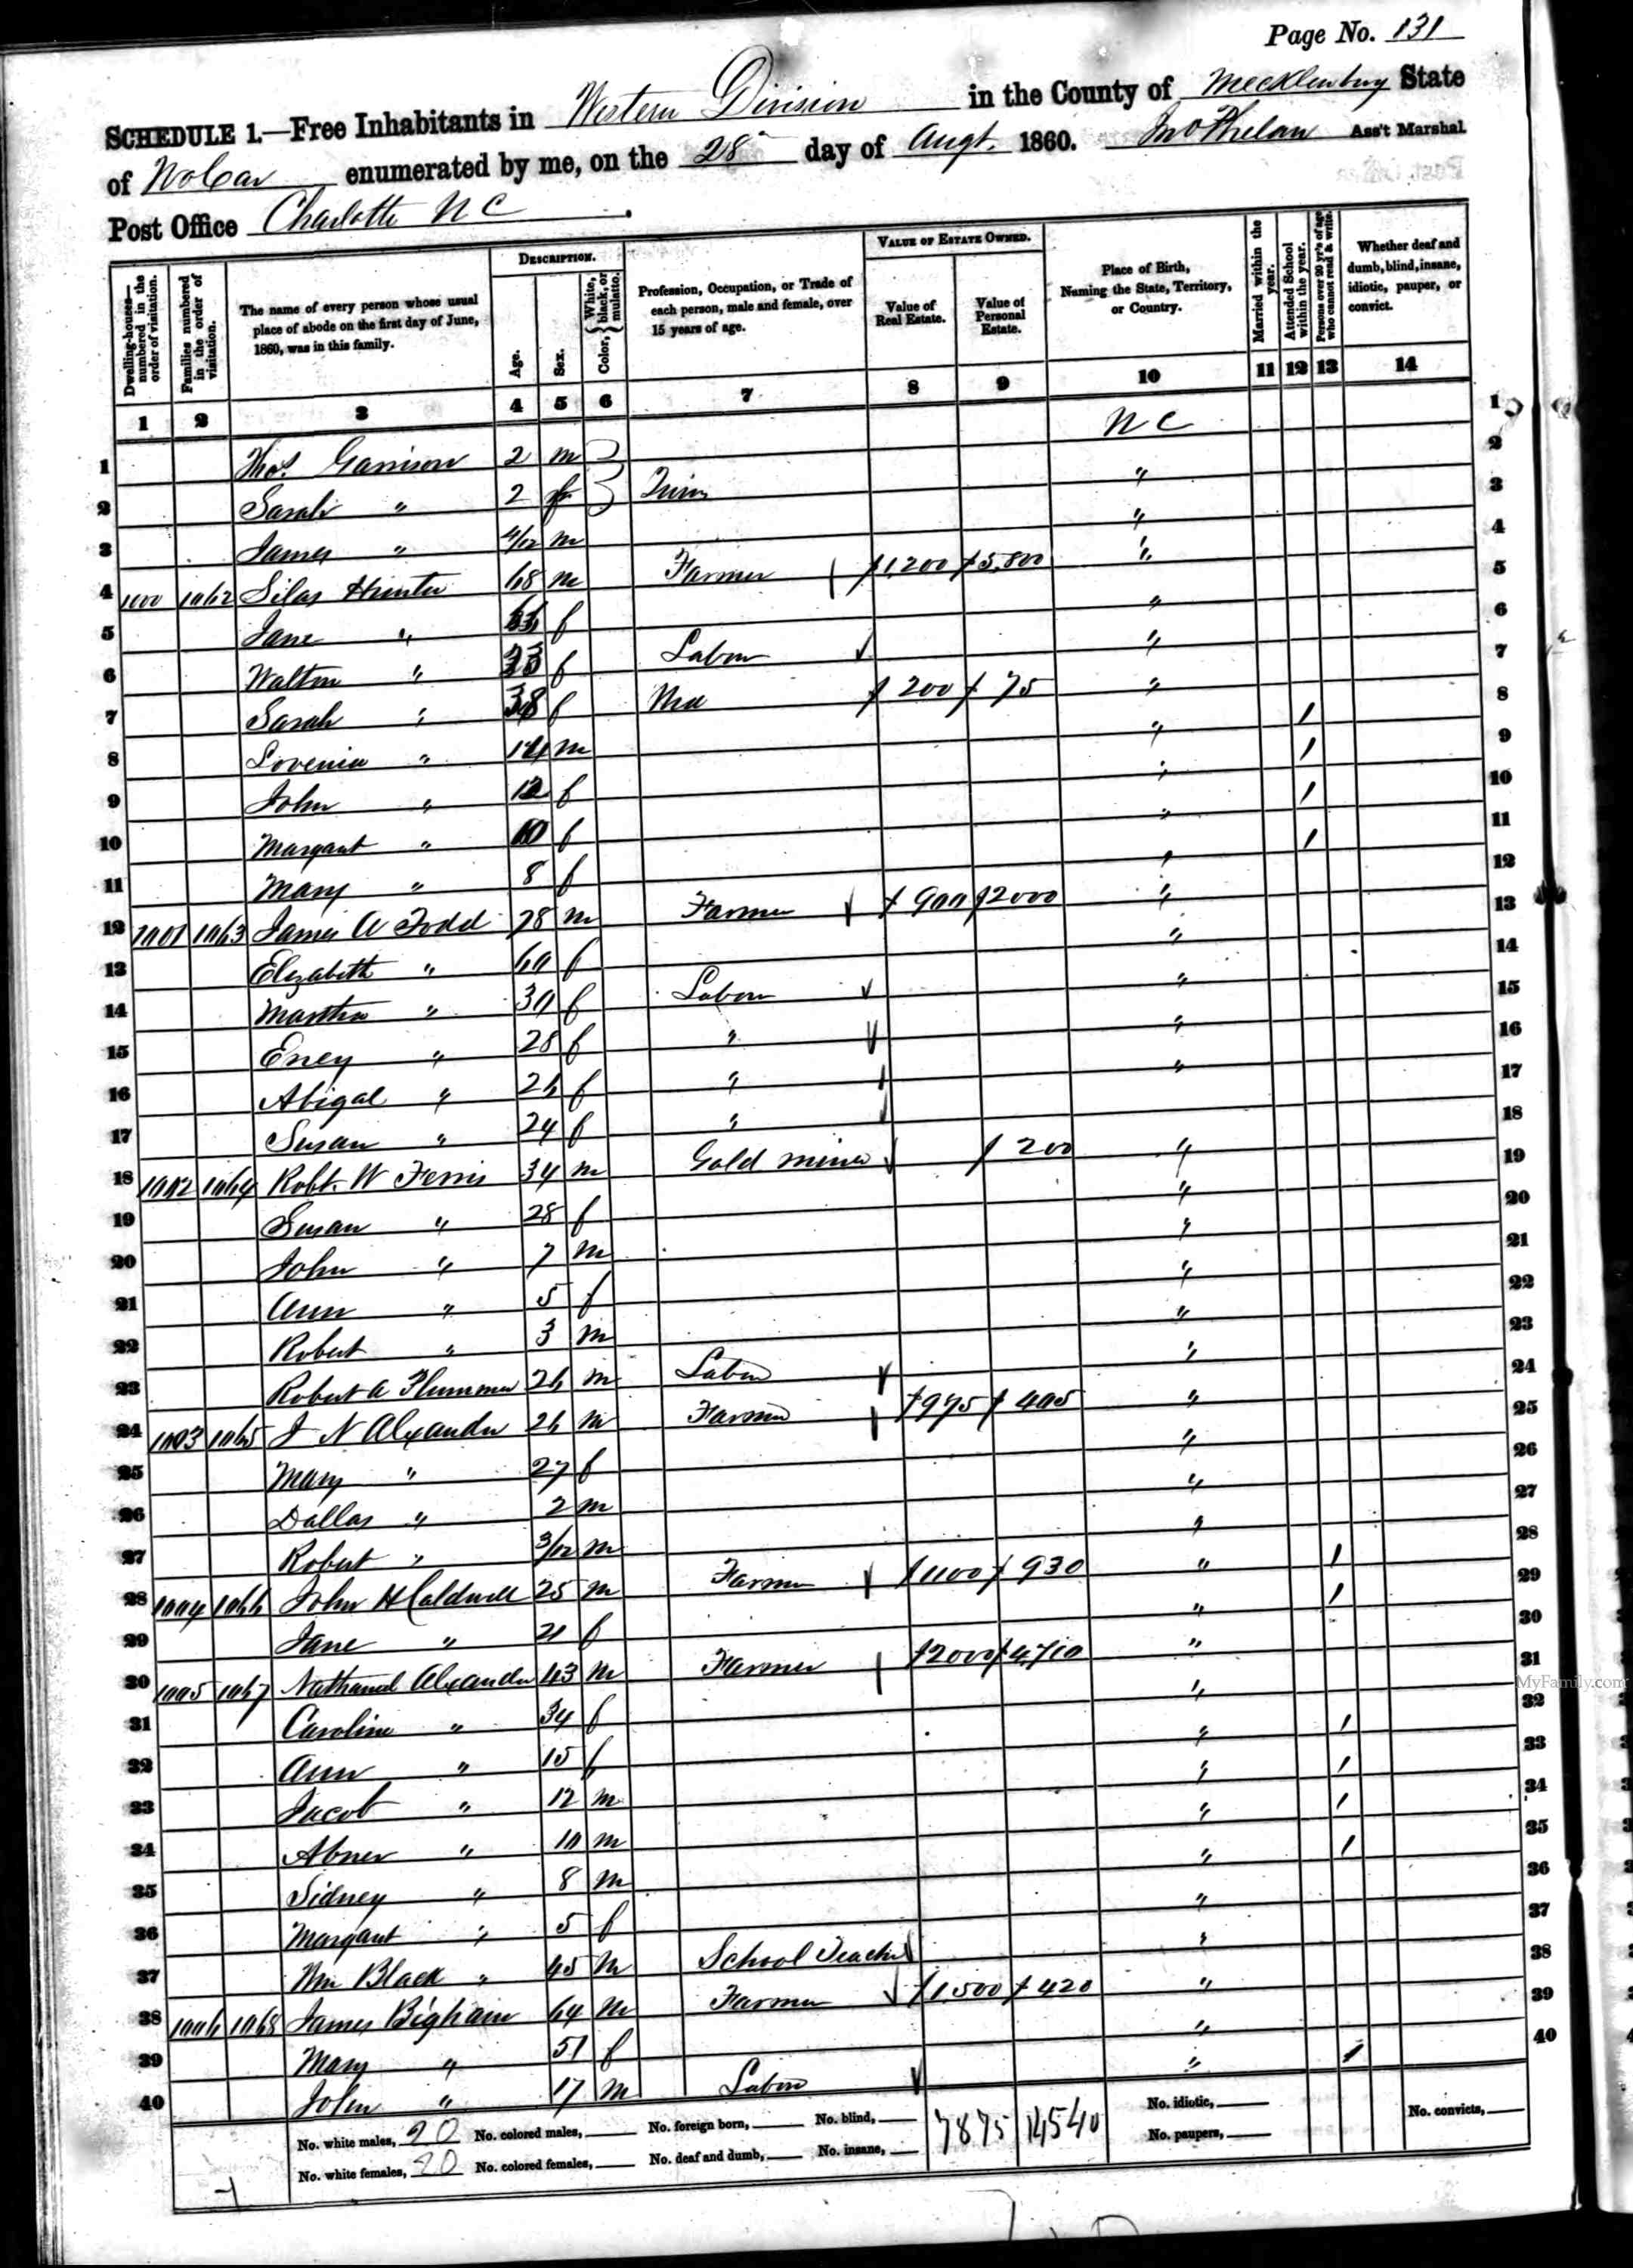 Page No. 131
SCHEDULE 1.—Free Inhabitants in Western Division in the County of Mecklenburg State
of No Car enumerated by me, on the 28 day of Augt. 1860. Jno Phelan Ass't Marshal
Post Office Charlotte N C
Dwelling-houses—numbered in the order of visitation.
Families numbered in the order of visitation.
The name of every person whose usual place of abode on the first day of June, 1860, was in this family.
DESCRIPTION.
Age.
Sex.
Color, White, black, or mulatto.
Profession, Occupation, or Trade of each person, male and female, over 15 years of age.
VALUE OF ESTATE OWNED.
Value of Real Estate.
Value of Personal Estate.
Place of Birth, Naming the State, Territory, or Country.
Married within the year.
Attended School within the year.
Persons over 20 yr's of age who cannot read & write.
Whether deaf and dumb, blind, insane, idiotic, pauper, or convict.
1 2 3 4 5 6 7 8 9 10 11 12 13 14
1 Thos. Garrison 2 m N C 1
2 Sarah " 2 f Twins " 2
3 James " 4/12 m " 3
4 1000 1062 Silas Hunter 68 m Farmer 1,200 5,800 " 4
5 Jane " f " 5
6 Walton " f Labor " 6
7 Sarah " 38 f 200 75 " 7
8 Lovenia " 14 m " 1 8
9 John " 12 f " 1 9
10 Margaret " 10 f " 1 10
11 Mary " 8 f " 1 11
12 1001 1063 James A Todd 78 m Farmer 900 2000 " 12
13 Elizabeth " 60 f " 13
14 Martha " 30 f Labor " 14
15 Eney " 28 f " " 15
16 Abigal " 26 f " " 16
17 Susan " 24 f " 17
18 1002 1064 Robt. W Ferris 34 m Gold miner 200 " 18
19 Susan " 28 f " 19
20 John " 7 m " 20
21 Ann " 5 f " 21
22 Robert " 3 m " 22
23 Robert A Plummer 26 m Labor " 23
24 1003 1065 J N Alexander 26 m Farmer 975 405 " 24
25 Mary " 27 f " 25
26 Dallas " 2 m " 26
27 Robert " 3/12 m " 27
28 1004 1066 John H Caldwell 25 m Farmer 1100 930 " 1 28
29 Jane " 21 f " 1 29
30 1005 1067 Nathanul Alexander 43 m Farmer 2000 4,710 " 30
31 Caroline " 34 f " 31
32 Ann " 15 f " 1 32
33 Jacob " 12 m " 1 33
34 Abner " 10 m " 1 34
35 Sidney " 8 m " 1 35
36 Margaret " 5 f " 36
37 Wm Black " 45 m School Teacher " 37
38 1006 1068 James Bigham 64 m Farmer 1,500 420 " 38
39 Mary " 51 f " 39
40 John " 17 m Labor " 1 40
No. white males, 20 No. colored males, No. foreign born, No. blind, 7875 14540 No. idiotic, No. convicts,
No. white females, 20 No. colored females, No. deaf and dumb, No. insane, No. paupers,
MyFamily.com